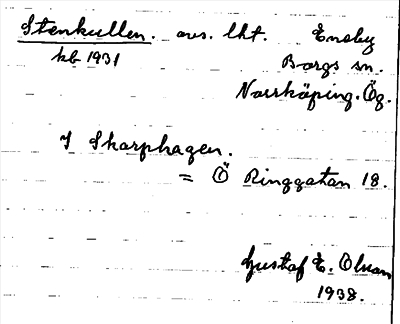 Stenkullen. avs. lht. Eneby
kb 1931 Borgs sn.
Norrköping. Ög.
I Skarphagen.
= Ö Ringgatan 18.
Gustaf E. Olson
1938.